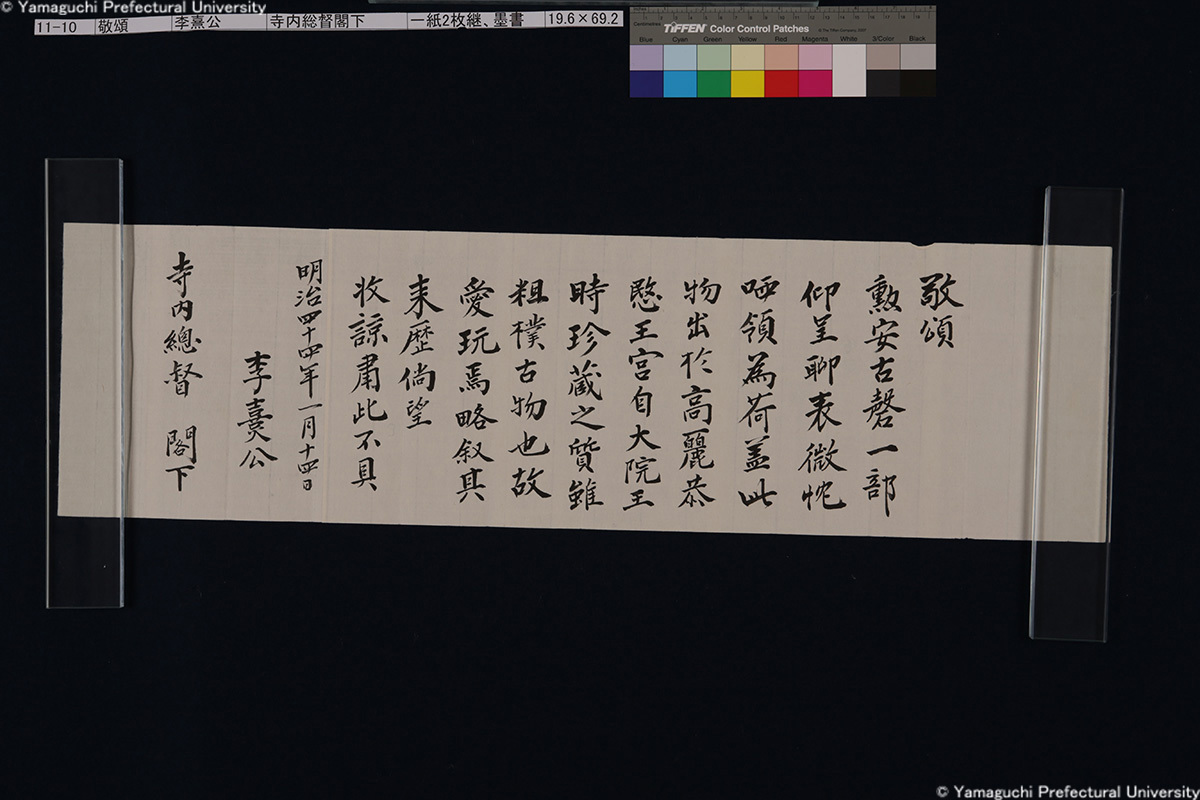 © Yamaguchi Prefectural University
11-10 敬頌 李熹公 寺内総督閣下 一紙2枚継、墨書 19.6×69.2
Centimetres
TIFFEN Color Control Patches
Blue Cyan Green Yellow Red Magenta White 3/Color Black
敬頌
勲安古磬一部
仰呈聊表微忱
哂領為荷蓋此
物出於高麗恭
愍王宮自大院王
時珍蔵之質雖
粗樸古物也故
愛玩焉略叙其
来歴倘望
收諒肅此不具
明治四十四年一月十四日
李熹公
寺内總督 閣下
© Yamaguchi Prefectural University